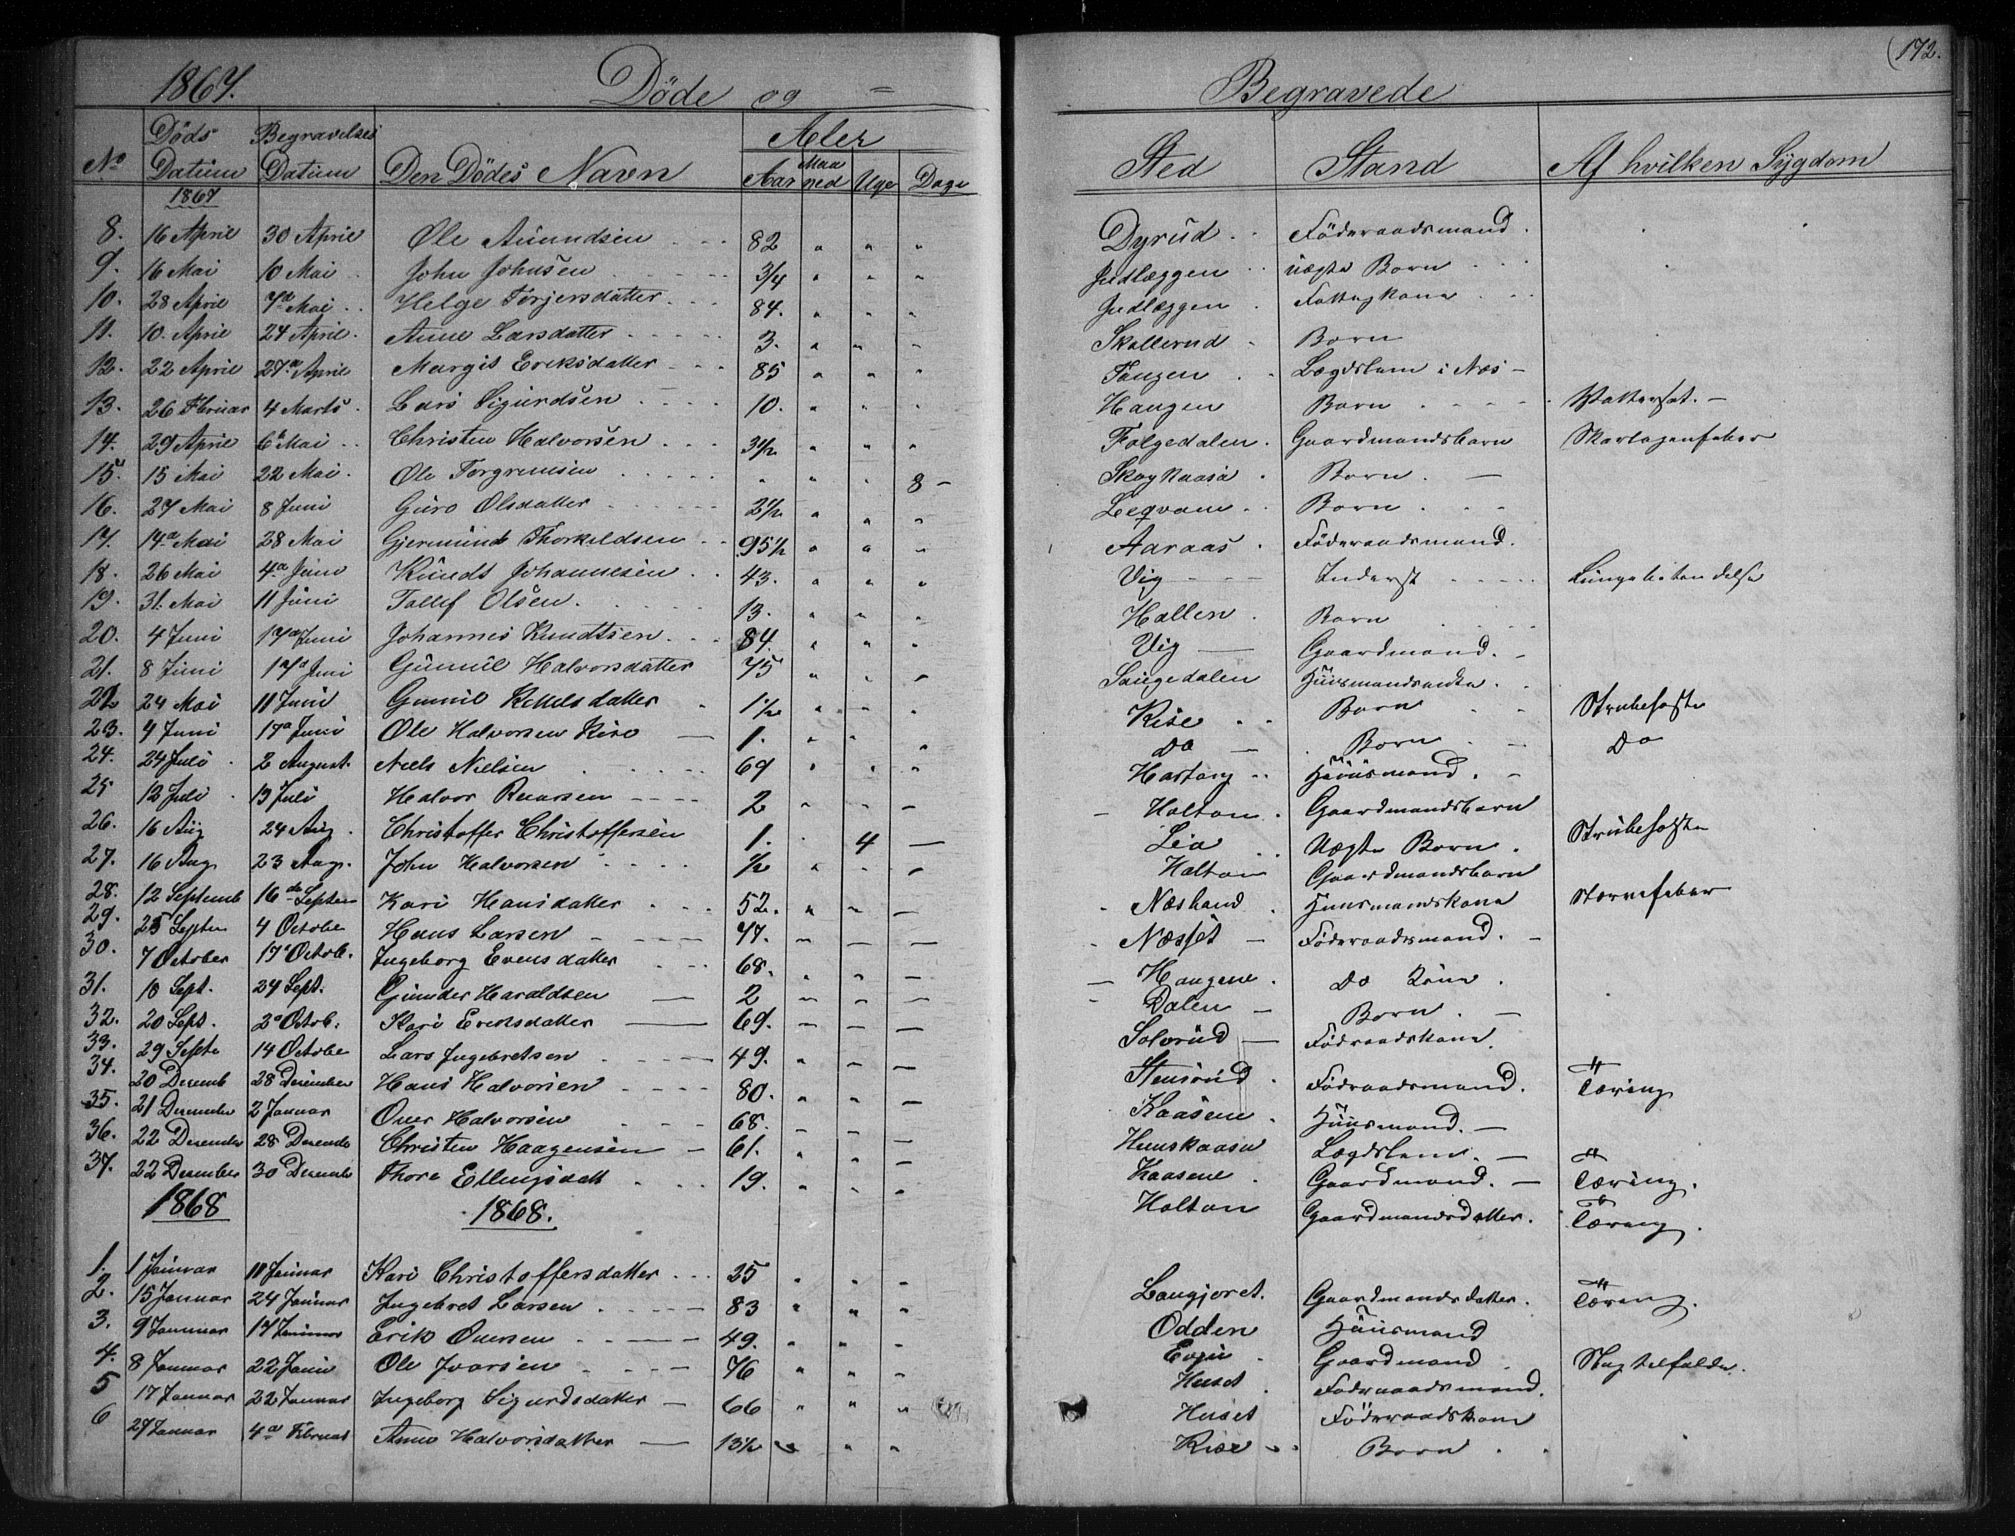 1867. Döde og = Begravede (172.
No Döds Datum Begravelses Datum Den Dödes Navn Aler Aar Maaned Uge Dage Sted Stand Af hvilken Sygdom
1867
8. 16 April 30 April Ole Amundsen 82 " " " Dyrud Föderaadsmand
9. 16 Mai 10 Mai John Johnsen 3/4 " " " Indlæggen uægte Barn
10. 28 April 7de Mai Helge Torjersdatter 84. " " " Indlæggen Fattigkone
11. 10. April 24 April Anne Larsdatter 3. " " " Skallerud Barn
12. 22 April 27de April Margit Eriksdatter 85 " " " Tangen Lægdslem i Næs
13. 26 Februar 4 Marts Lars Sigurdsen 10. " " " Haugen Barn Vattersot.
14. 29 April 6te Mai Christen Halvorsen 3 1/2 " " " Folgedalen Gaardmandsbarn Skarlagenfeber
15. 15 Mai 22 Mai Ole Torgrimsen " " " 8 Skogkaasa Barn
16. 27 Mai 8 Juni Guro Olsdatter 2 1/2 " " " Leqvam Barn
17. 14de Mai 28 Mai Gjermund Thorkildsen 95 1/2 " " " Aaraas Föderaadsmand.
18. 26 Mai 4de Juni Knudt Johannesen 43. " " " Vig Inderst Lungebetændelse
19. 31. Mai 11 Juni Tollef Olsen 13. " " " Hallen Barn
20. 4 Juni 17de Juni Johannes Knudtsen 84. " " " Vig Gaardmand.
21. 8 Juni 17de Juni Gunnil Halvorsdatter 75 " " " Saugedalen Huusmandsenke
22 24 Mai 11 Juni Gunnil Ketilsdatter 1 1/2 " " " Rise Barn Strubehoste
23. 4 Juni 17de Juni Ole Halvorsen Rise 1. " " " Do Barn Do
24. 24 Juli 2 August. Niels Nielsen 69 " " " Huusmand.
25 12 Juli 13 Juli Halvor Roarsen 2 " " " Holtan Gaardmandsbarn
26. 16 Aug 24 Aug. Christoffer Christoffersen 1. 4 Lia Uægte Barn Strubehoste
27. 16 Aug 23 Aug. John Halvorsen 1/2 " " " Holtan Gaardmandsbarn
28. 12 Septemb 16de Septem Kari Hansdatter 52. " " " Næsland Huusmandskone Nervefeber
29. 25 Septe 4 Octobe Hans Larsen 77. Næsset Föderaadsmand.
30. 7 October 17de Octob. Ingeborg Evensdatter 68. Haugene Do Kone
31. 10 Sept. 24 Sept. Gunder Haraldsen 2 Dalen Barn.
32. 20 Sept. 2de Octob. Kari Eriksdatter 69. Solvrud Födraadskone
33. 29 Septe 14 Octobe Lars Ingebretsen 49. Stensrud Födraadsmand. Tæring
34. 20 Decemb 28 December Hans Halvorsen 80. Kaasene Huusmand.
35. 21 December 2 Januar Over Halvorsen 68. Huuskaasa Lægdslem.
36. 22 December 28 Decembe Christen Haagensen 61. Kaasene Gaardmand. Tæring.
37. 22 December 30 Decembe Thore Ellingsdatt 19. Holtan Gaardmandsdatter. Tæring.
1868 1868.
1. 1 Januar 11 Januar Kari Christoffersdatter 25 " " " Langjoret. Gaardmandsdatter. Tæring.
2. 15 Januar 24 Januar Ingebret Larsen 83 " " " Odden Huusmand
3. 9 Januar 17 Januar Erik Oversen 49. " " " Evju Gaardmand Slagtilfælde.
4. 8 Januar 22 Janu Ole Ivarsen 76 " " " Huset Föderaadsmand.
5 17 Januar 22 Januar Ingeborg Sigurdsdatter 66 " " " Huset Föderaadskone
6 27 Januar 4de Februar Anne Halvorsdatter 13 1/2 " " " Rise Barn